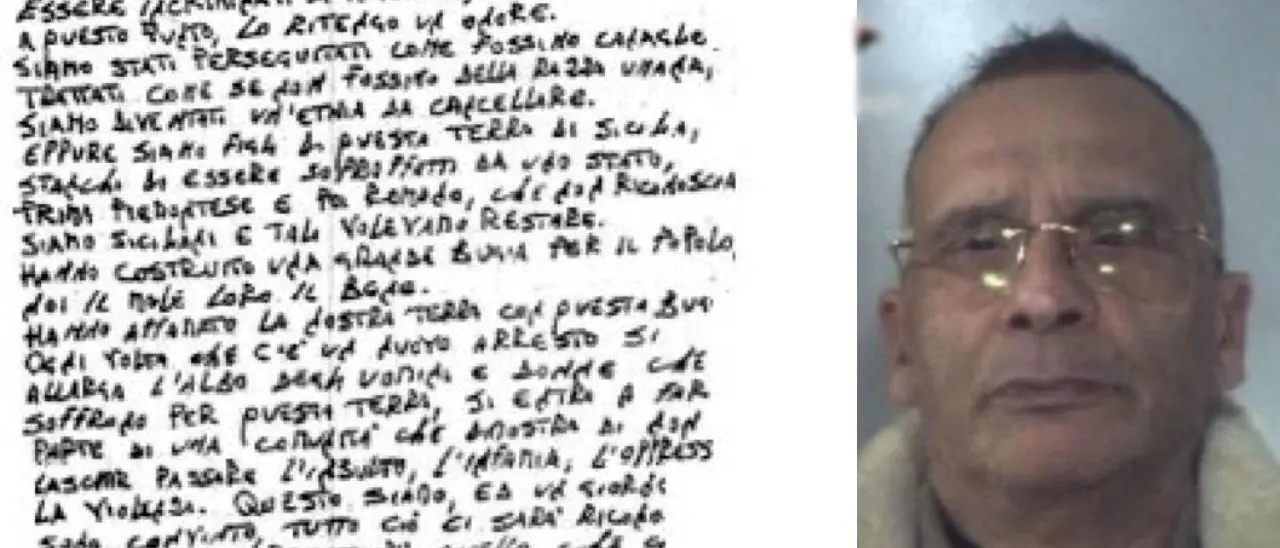 ESSERE INCRIMINATI DI
A QUESTO PUNTO, LO RITENGO UN ONORE.
SIAMO STATI PERSEGUITATI COME FOSSIMO CANAGLIE.
TRATTATI COME SE NON FOSSIMO DELLA RAZZA UMANA,
SIAMO DIVENTATI UN'ETNIA DA CANCELLARE.
EPPURE SIAMO FIGLI DI QUESTA TERRA DI SICILIA,
STANCHI DI ESSERE SOPRAFFATTI DA UNO STATO,
PRIMA PIEMONTESE E POI ROMANO, CHE NON RICONOSCIA
SIAMO SICILIANI E TALI VOLEVAMO RESTARE.
HANNO COSTRUITO UNA GRANDE BUGIA PER IL POPOLO,
NOI IL MALE LORO IL BENE.
HANNO AFFAMATO LA NOSTRA TERRA CON QUESTA BUG
OGNI VOLTA CHE C'E' UN NUOVO ARRESTO SI
ALLARGA L'ALBO DEGLI UOMINI E DONNE CHE
SOFFRONO PER QUESTA TERRA, SI ENTRA A FAR
PARTE DI UNA COMUNITA' CHE DIMOSTRA DI NON
LASCIAR PASSARE L'INSULTO, L'INFAMIA, L'OPPRESS
LA VIOLENZA. QUESTO SIAMO, ED UN GIORNO
SONO CONVINTO, TUTTO CIÒ CI SARÀ RICONO